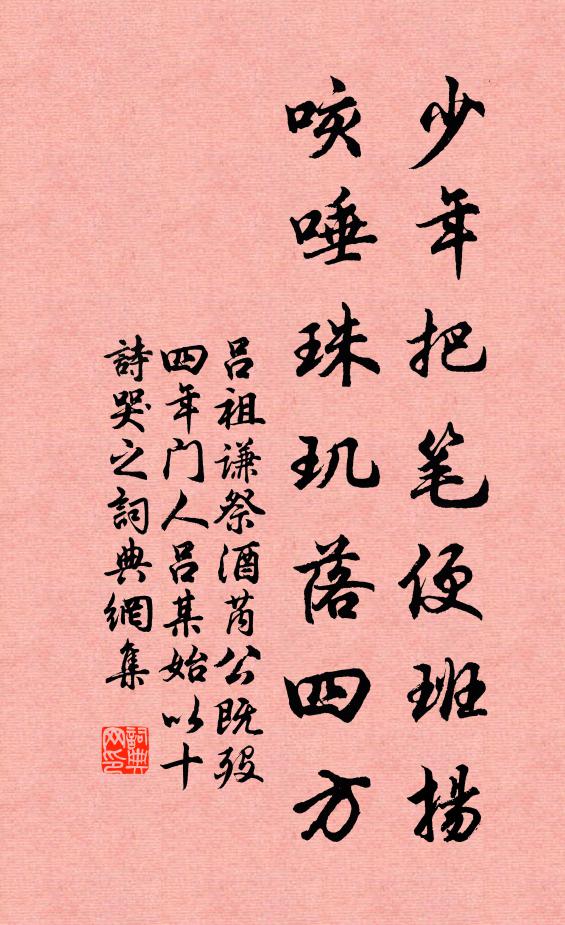 少年把笔便班揚
咳唾珠玑落四方
吕祖谦祭酒芮公既殁
四年门人吕某始以十
詩哭之詞典網集
詞典网印